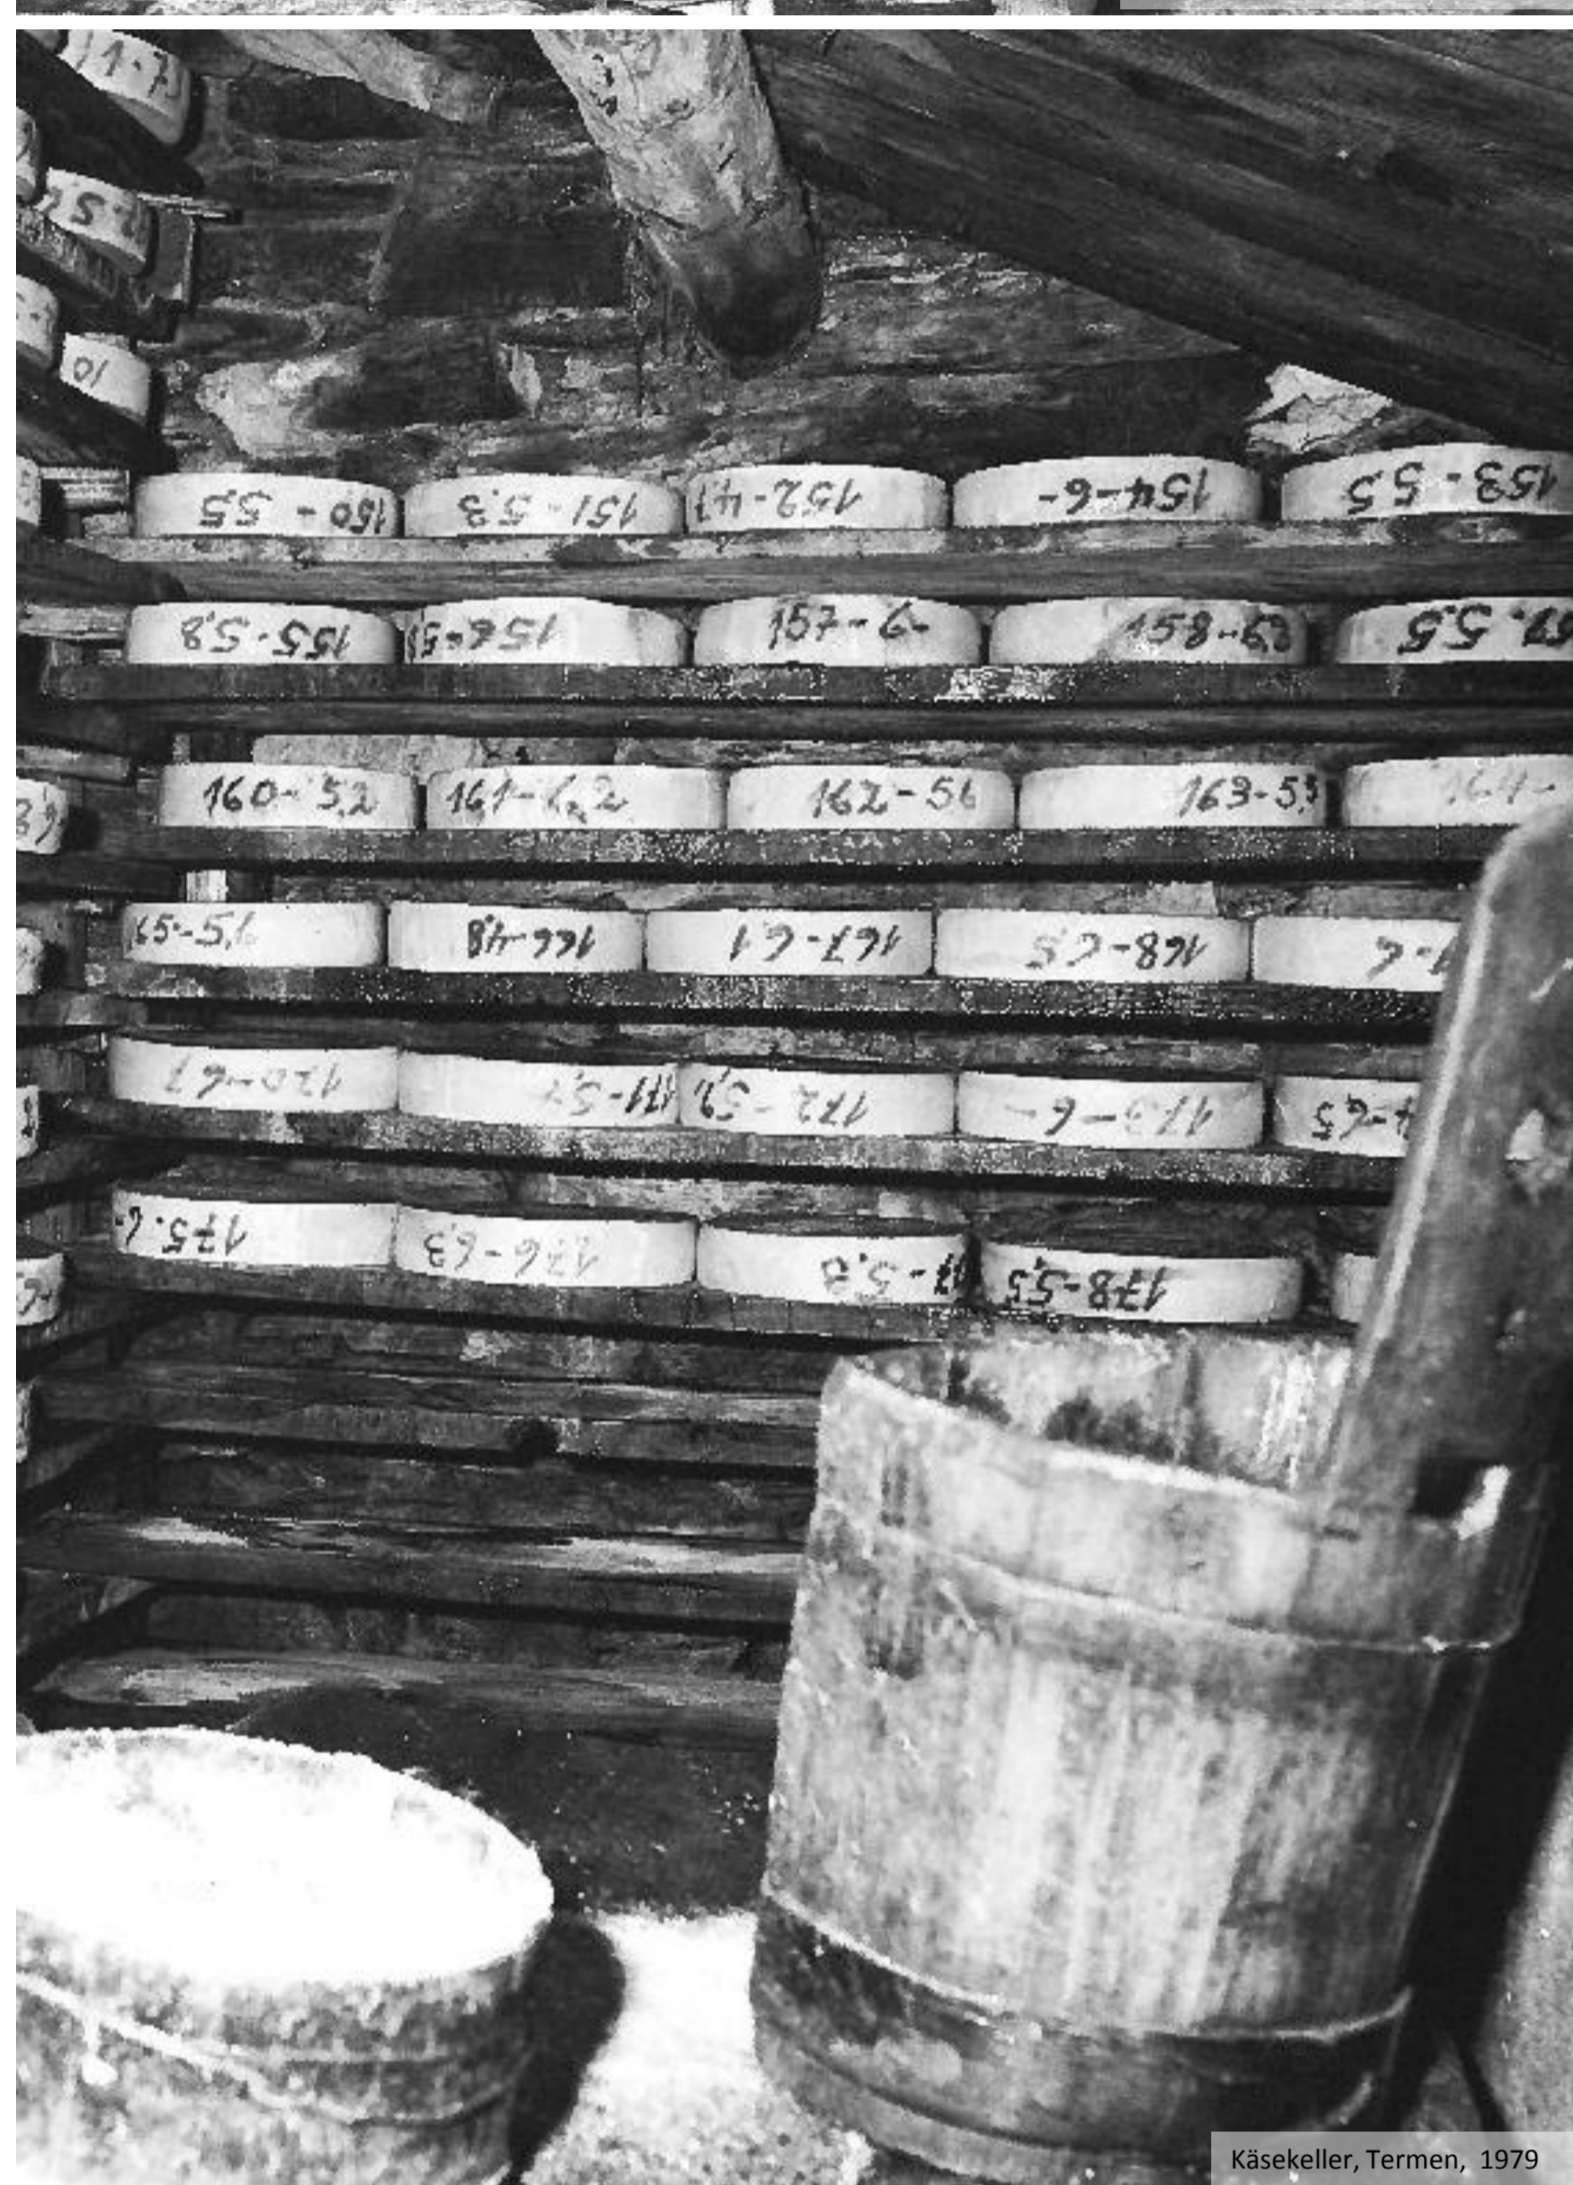 150 - 5,5
151 - 5,3
152 - 4,7
154 - 6 -
153 - 5,5
155 - 5,8
156 -
157 - 6 -
158 -
5,5
160 - 5,2
161 - 6,2
162 - 56
163 - 5,3
164 -
65 - 5,6
166 - 4,8
167 - 6,1
168 - 6,5
170 - 6,7
171 - 5,7
172 - 5,2
173 - 6 -
- 6,5
175 - 6 -
176 - 6,3
- 5,8
178 - 5,5
Käsekeller, Termen, 1979